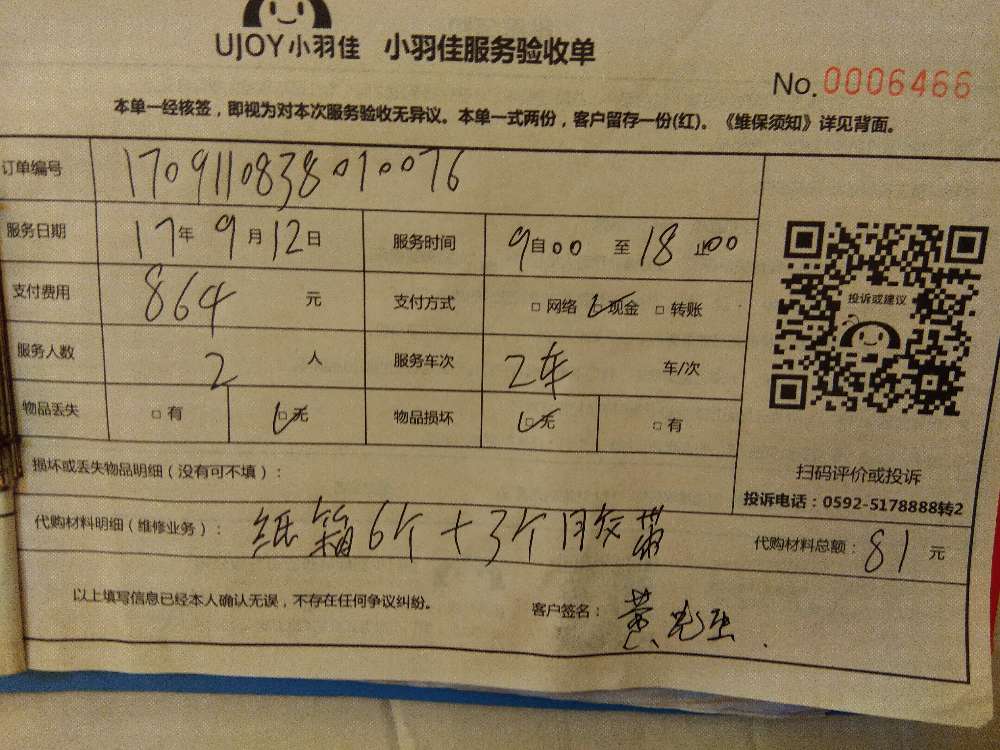 UJOY小羽佳 小羽佳服务验收单
No.0006466
本单一经核签，即视为对本次服务验收无异议。本单一式两份，客户留存一份(红)。《维保须知》详见背面。
订单编号 1709110838010076
服务日期 17年 9月12日 服务时间 9自00 至18止00
支付费用 864 元 支付方式 □ 网络 □ 现金 □ 转账
投诉或建议
服务人数 2 人 服务车次 2车 车/次
物品丢失 □ 有 □ 无 物品损坏 □ 无 □ 有
损坏或丢失物品明细（没有可不填）：
扫码评价或投诉
投诉电话：0592-5178888转2
代购材料明细（维修业务）： 纸箱6个+3个月交带 代购材料总额：81 元
以上填写信息已经本人确认无误，不存在任何争议纠纷。 客户签名： 黄先生